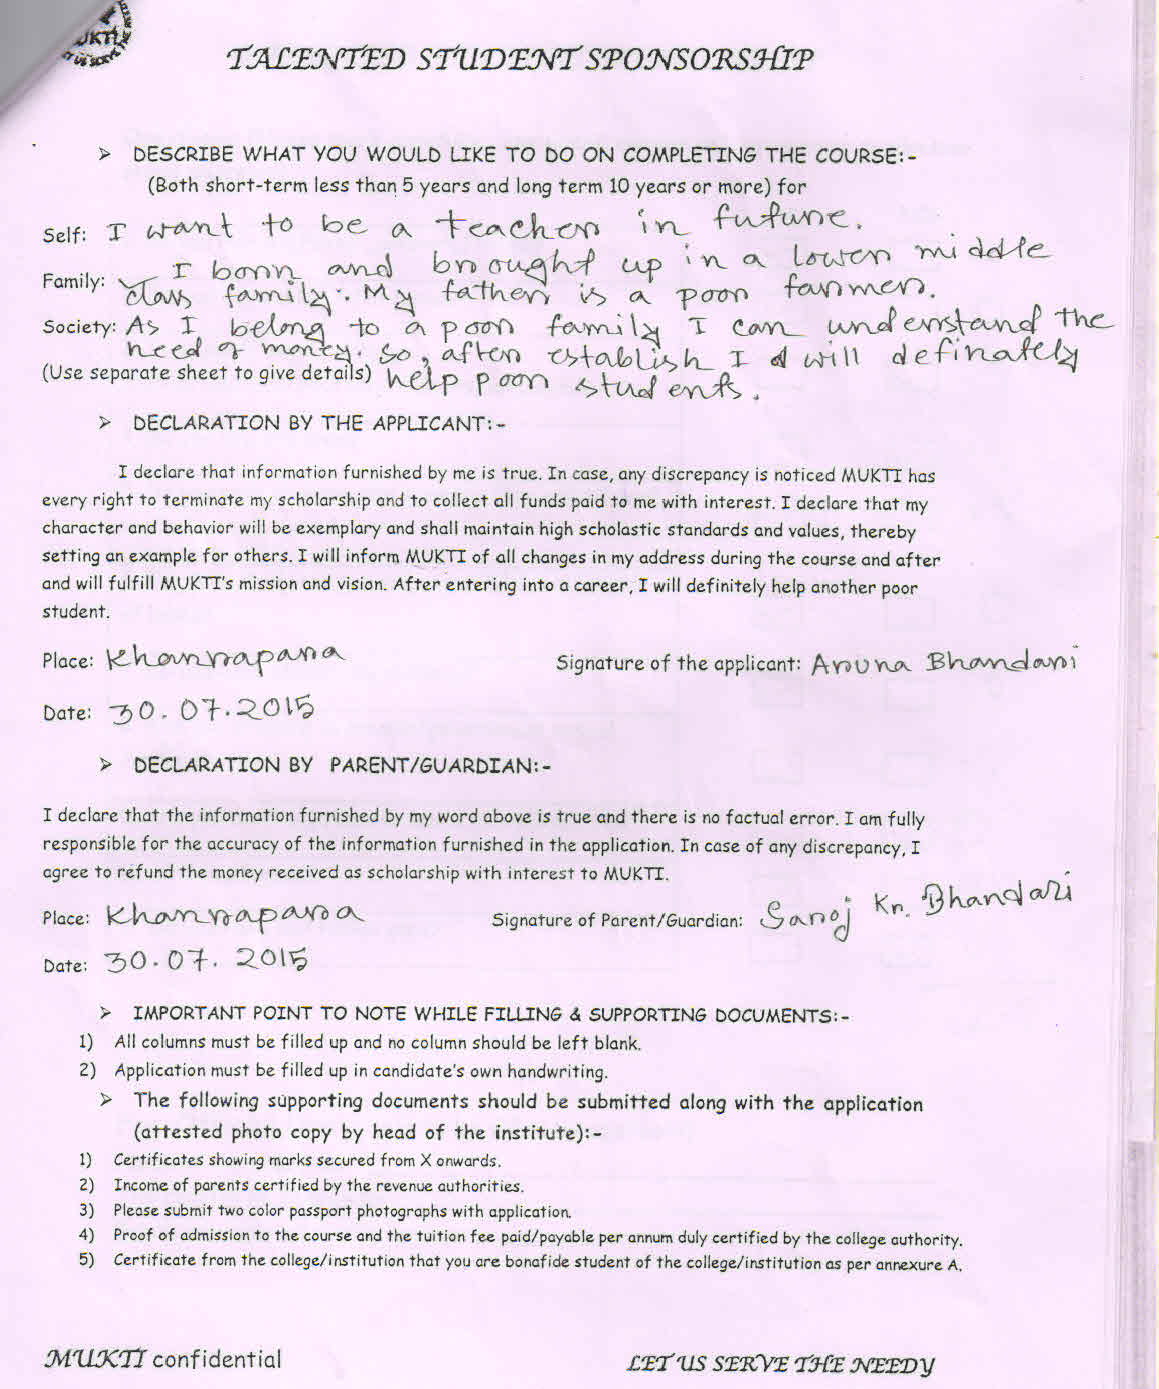 MUKTI
TALENTED STUDENT SPONSORSHIP
➢ DESCRIBE WHAT YOU WOULD LIKE TO DO ON COMPLETING THE COURSE:-
(Both short-term less than 5 years and long term 10 years or more) for
Self: I want to be a teacher in future.
Family: I born and brought up in a lower middle
class family. My father is a poor farmer.
Society: As I belong to a poor family I can understand the
need of money. so, after establish I will definately
(Use separate sheet to give details) help poor students.
➢ DECLARATION BY THE APPLICANT:-
I declare that information furnished by me is true. In case, any discrepancy is noticed MUKTI has
every right to terminate my scholarship and to collect all funds paid to me with interest. I declare that my
character and behavior will be exemplary and shall maintain high scholastic standards and values, thereby
setting an example for others. I will inform MUKTI of all changes in my address during the course and after
and will fulfill MUKTI's mission and vision. After entering into a career, I will definitely help another poor
student.
Place: Kharrapara Signature of the applicant: Aruna Bhandari
Date: 30.07.2015
➢ DECLARATION BY PARENT/GUARDIAN:-
I declare that the information furnished by my word above is true and there is no factual error. I am fully
responsible for the accuracy of the information furnished in the application. In case of any discrepancy, I
agree to refund the money received as scholarship with interest to MUKTI.
Place: Kharrapara Signature of Parent/Guardian: Saroj Kr. Bhandari
Date: 30.07.2015
➢ IMPORTANT POINT TO NOTE WHILE FILLING & SUPPORTING DOCUMENTS:-
1) All columns must be filled up and no column should be left blank.
2) Application must be filled up in candidate's own handwriting.
➢ The following supporting documents should be submitted along with the application
(attested photo copy by head of the institute):-
1) Certificates showing marks secured from X onwards.
2) Income of parents certified by the revenue authorities.
3) Please submit two color passport photographs with application.
4) Proof of admission to the course and the tuition fee paid/payable per annum duly certified by the college authority.
5) Certificate from the college/institution that you are bonafide student of the college/institution as per annexure A.
MUKTI confidential LET US SERVE THE NEEDY